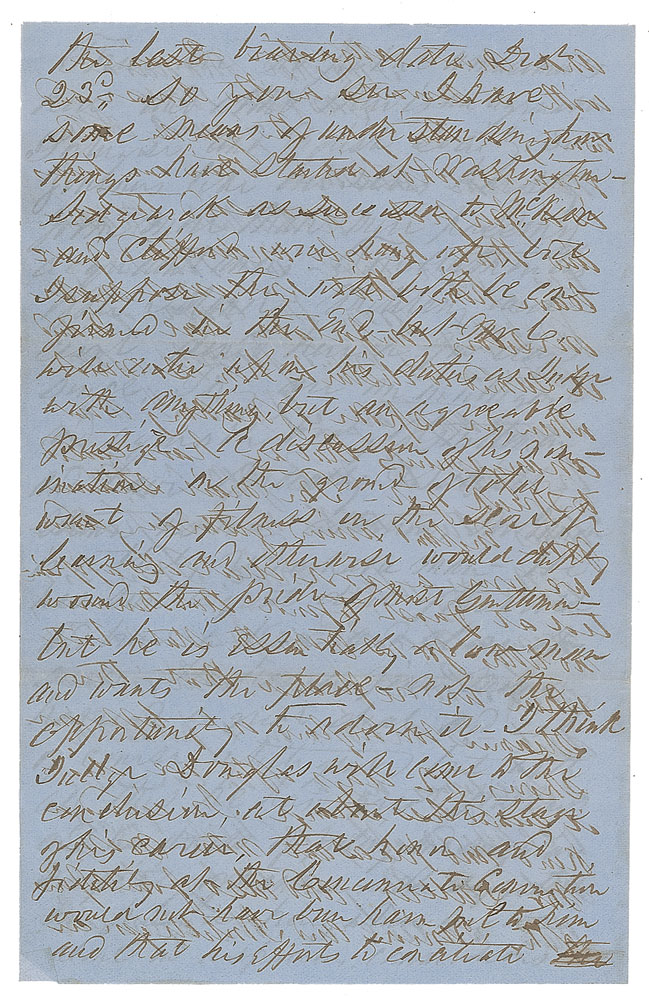 the last bearing date Dec
23d, so you see I have
some means of understanding how
things have started at Washington –
Sedgwick as successor to McKeon
and Clifford were hung up but
I suppose they will both be con-
firmed in the End – but
will enter upon his duties as Judge
with anything but an agreeable
prestige – A discussion of his nom-
ination on the ground of total
want of fitness in the score of
learning and otherwise would deeply
wound the pride of most Gentlemen –
but he is essentially a low man
and wants the place – not the
opportunity to adorn it – I think
Judge Douglas will come to the
conclusion, at about this stage
of his career, that honor and
fidelity at the Cincinnati Convention
would not have been harmful to him
and that his efforts to conciliate the